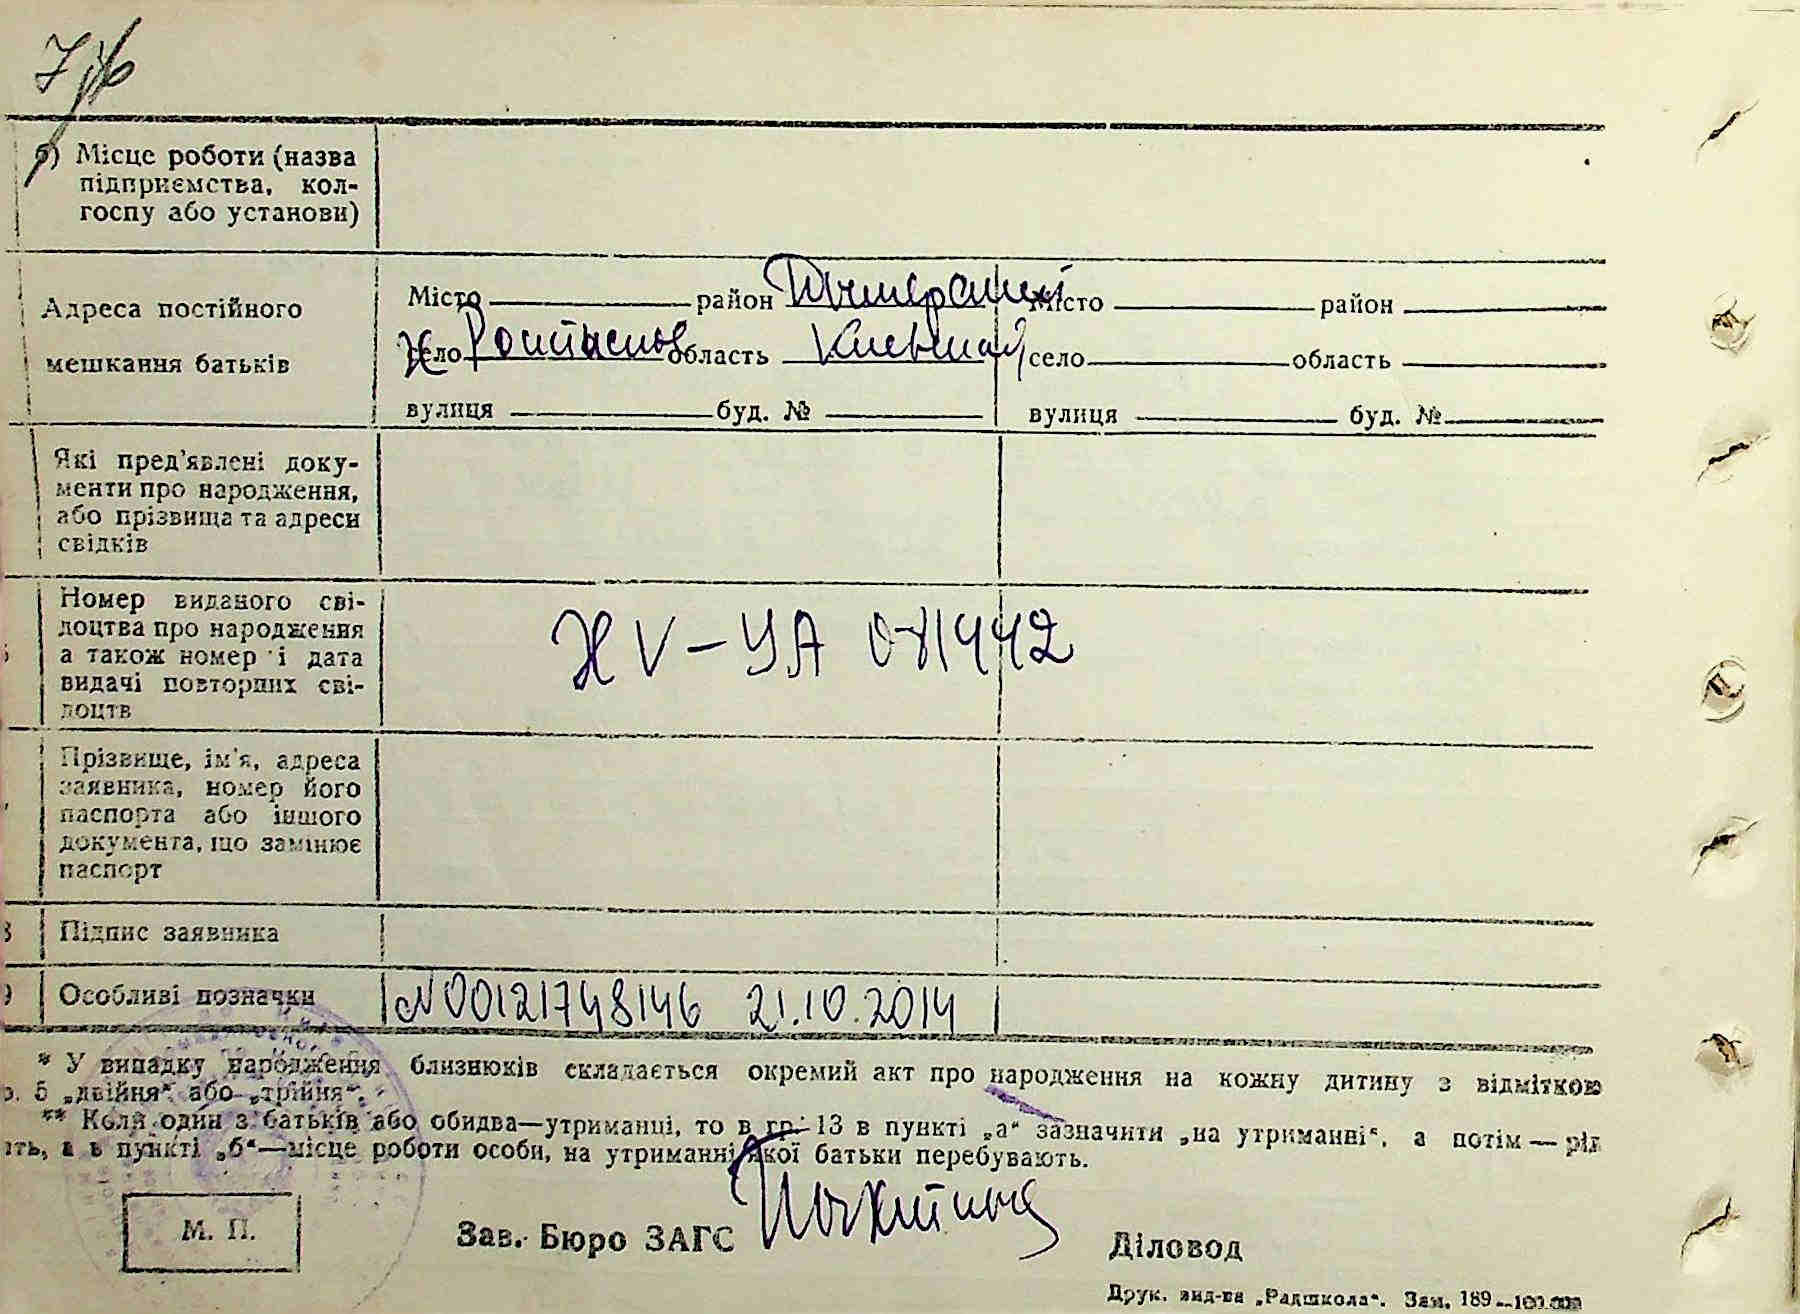 б) Місце роботи (назва
підприємства, кол-
госпу або установи)
Адреса постійного
мешкання батьків
Місто район Місто район
село область село область
вулиця буд. № вулиця буд. №
Які пред'явлені доку-
менти про народження,
або прізвища та адреси
свідків
Номер виданого сві-
доцтва про народження
а також номер і дата
видачі повторних сві-
доцтв
V-УА 081442
Прізвище, ім'я, адреса
заявника, номер його
паспорта або іншого
документа, що замінює
паспорт
8 Підпис заявника
9 Особливі позначки N00121748146 21.10.2014
* У випадку народження близнюків складається окремий акт про народження на кожну дитину з відміткою
р. 5 „двійня" або „трійня".
** Коли один з батьків або обидва—утриманці, то в гр. 13 в пункті „а" зазначити „на утриманні", а потім — рід
ять, а в пункті „б"—місце роботи особи, на утриманні якої батьки перебувають.
М. П.
Зав. Бюро ЗАГС
Діловод
Друк. вид-ва „Радшкола". Зам. 189